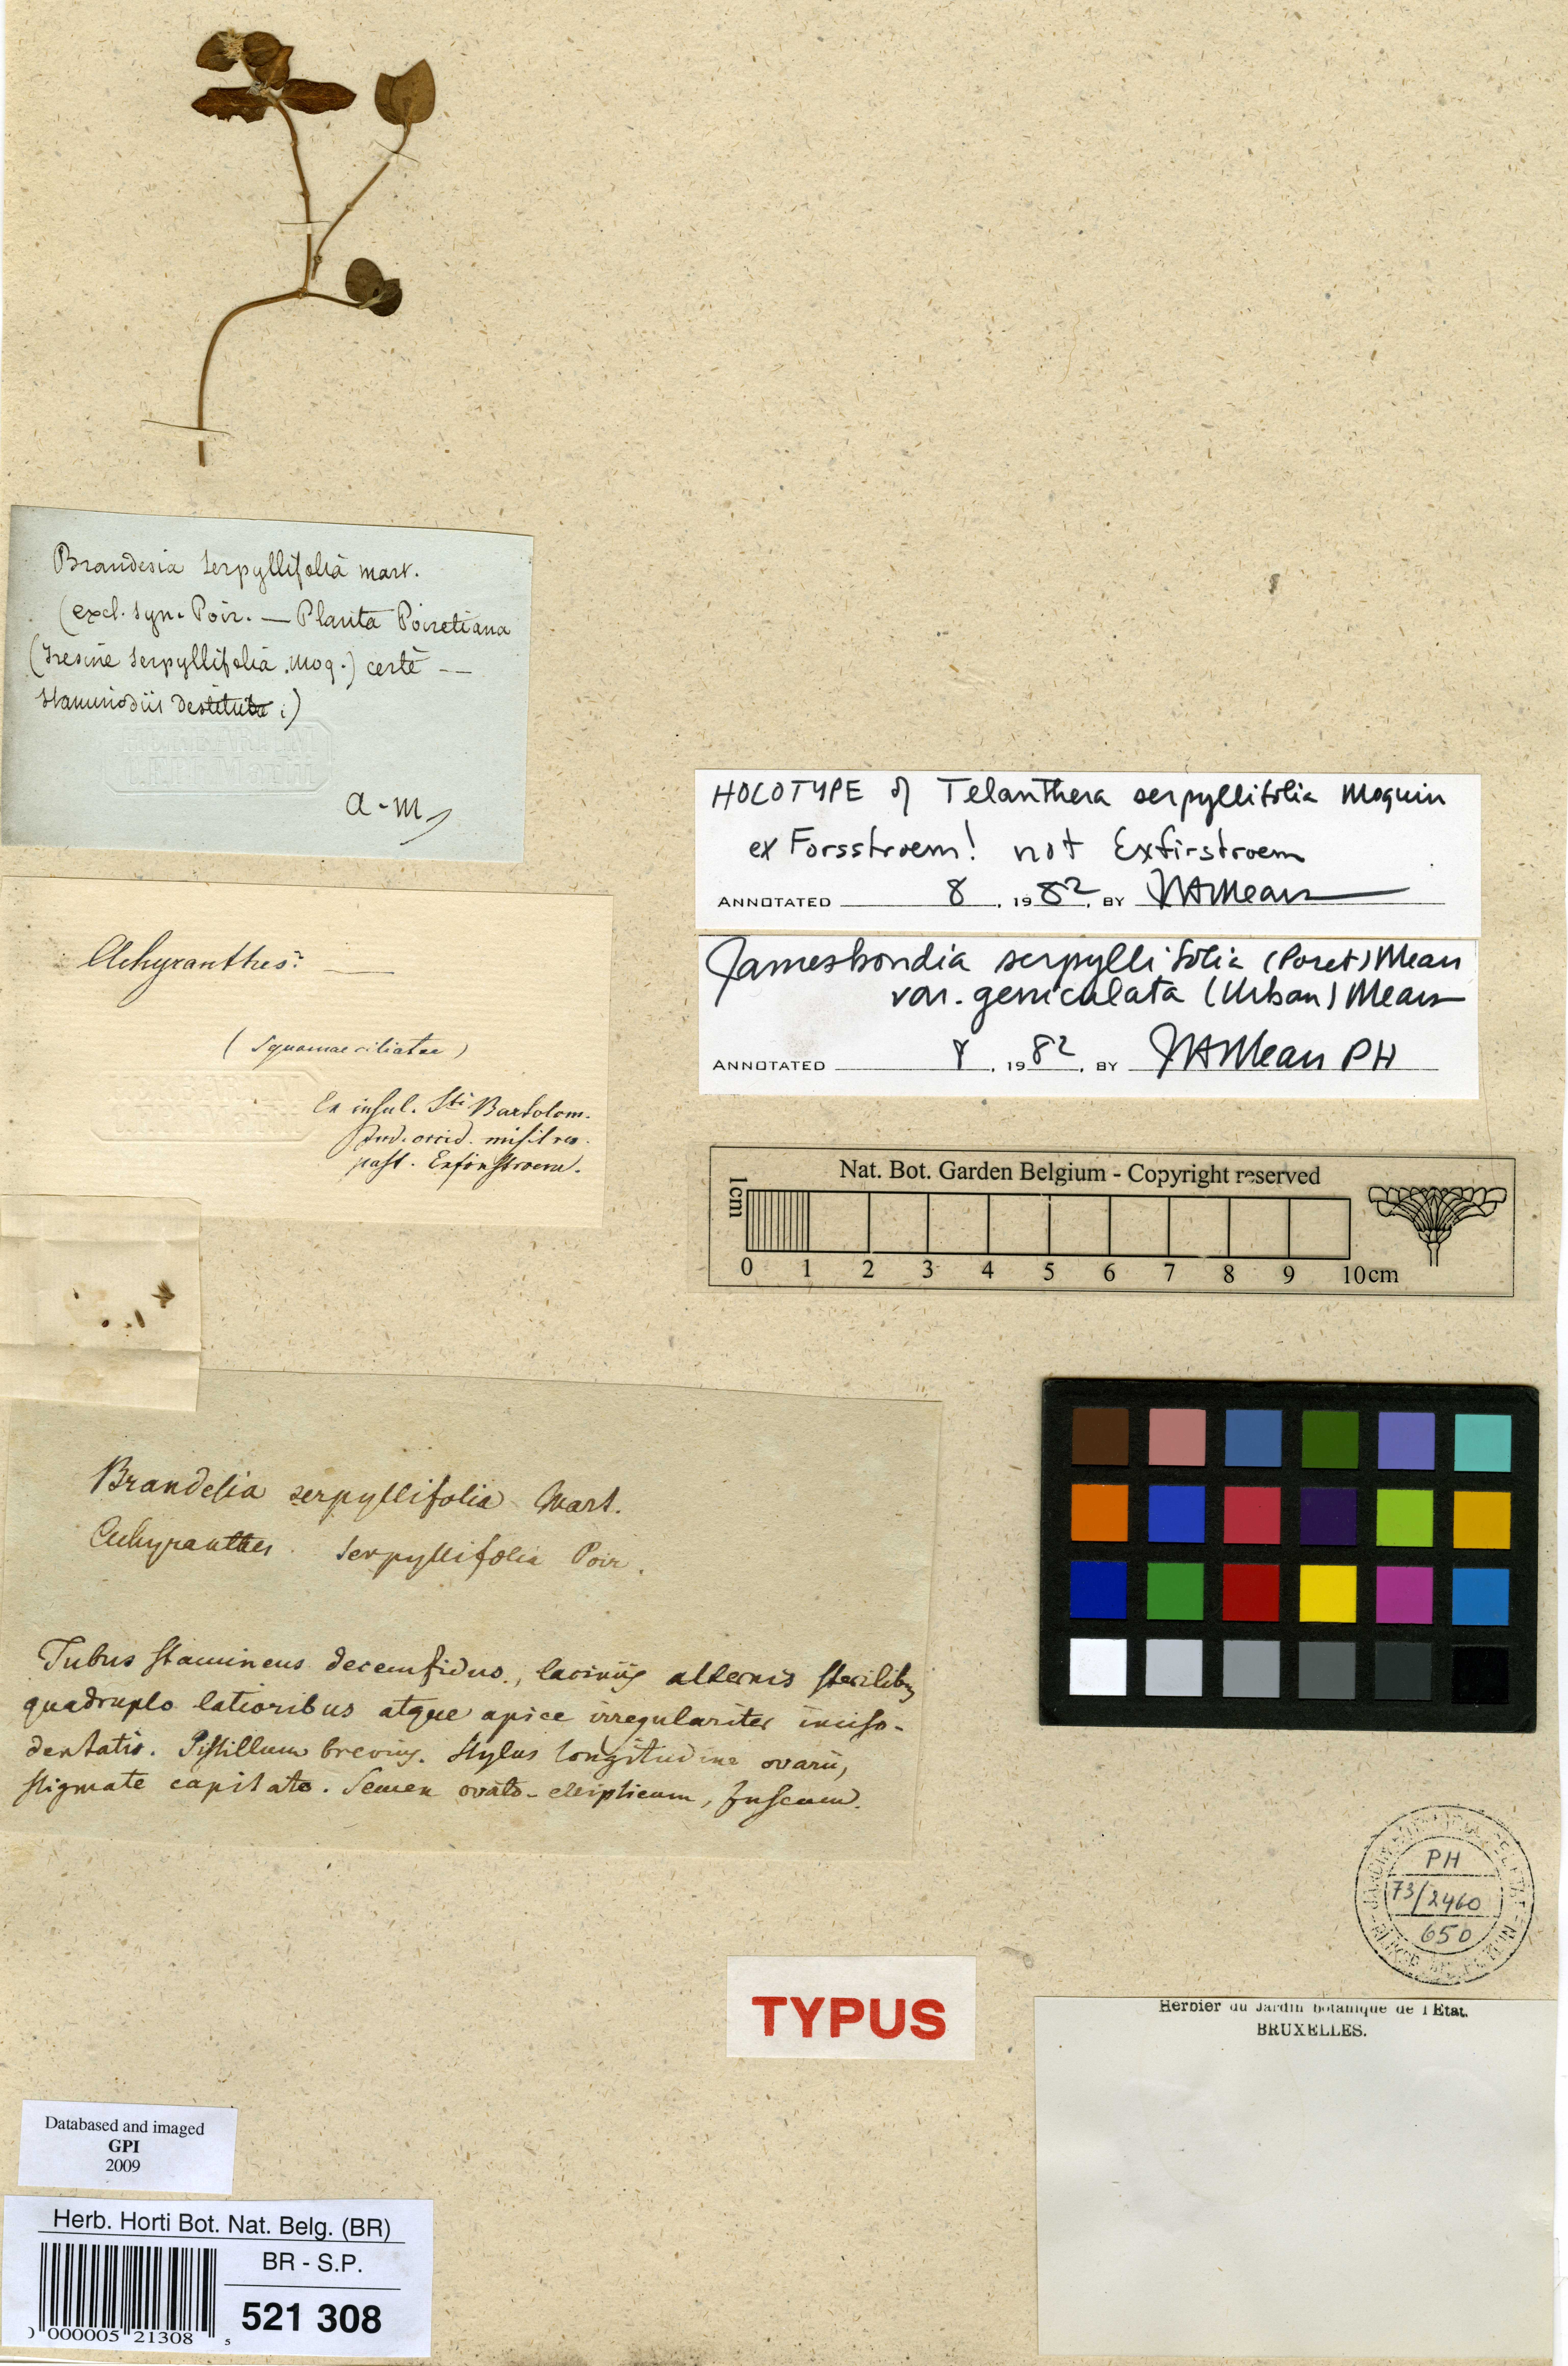 Brandesia serpyllifolia mart.
(excl. syn. Poir. — Planta Poiretiana
(Iresine serpyllifolia Moq.) certè --
staminodiis destituta.)
a-m
HOLOTYPE of Telanthera serpyllifolia Moquin
ex Forsstroem! not Exfirstroem
ANNOTATED 8, 1982, BY JAMears
Achyranthes: —
(Squamae ciliatae)
Ex insul. Sti Bartolom.
Ind. occid. misit rev.
past. Exfirstroem.
Jamesbondia serpyllifolia (Poret) Mears
var. geniculata (Urban) Mears
ANNOTATED 8, 1982, BY JAMears PH
Nat. Bot. Garden Belgium - Copyright reserved
1cm
0 1 2 3 4 5 6 7 8 9 10cm
Brandesia serpyllifolia Mart.
Achyranthes serpyllifolia Poir.
Tubus stamineus decemfidus, laciniis alternis sterilibus
quadruplo latioribus atque apice irregulariter inciso-
dentatis. Pistillum brevius. Stylus longitudine ovarii,
stigmate capitato. Semen ovato-ellipticum, fuscum.
PH
73/2460
650
TYPUS
Herbier du Jardin botanique de l'Etat.
BRUXELLES.
Databased and imaged
GPI
2009
Herb. Horti Bot. Nat. Belg. (BR)
BR - S.P.
521 308
000005 21308 5